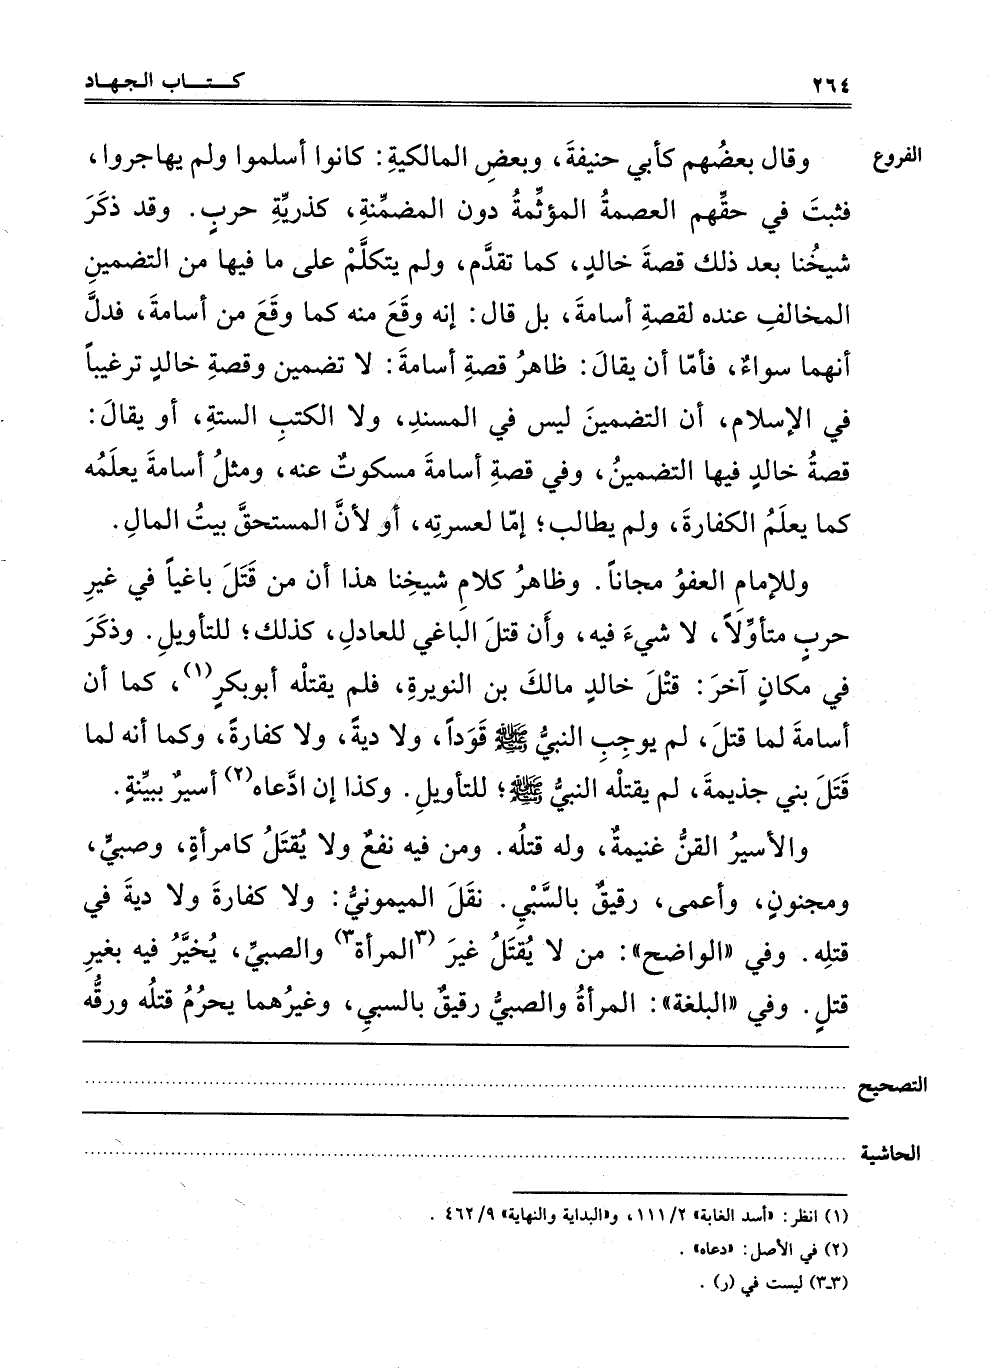 ٢٦٤ كـتـــاب الـجـهـاد
الفروع وقال بعضُهم كأبي حنيفةَ، وبعضِ المالكيةِ: كانوا أسلموا ولم يهاجروا،
فثبتَ في حقِّهم العصمةُ المؤثِّمةُ دون المضمِّنةِ، كذريَّةِ حربٍ. وقد ذكَرَ
شيخُنا بعد ذلك قصةَ خالدٍ، كما تقدَّم، ولم يتكلَّمْ على ما فيها من التضمينِ
المخالفِ عنده لقصةِ أسامةَ، بل قال: إنه وقَعَ منه كما وقَعَ من أسامةَ، فدلَّ
أنهما سواءٌ، فأمّا أن يقالَ: ظاهرُ قصةِ أسامةَ: لا تضمين وقصةِ خالدٍ ترغيباً
في الإسلامِ، أن التضمينَ ليس في المسندِ، ولا الكتبِ الستةِ، أو يقالَ:
قصةُ خالدٍ فيها التضمينُ، وفي قصةِ أسامةَ مسكوتٌ عنه، ومثلُ أسامةَ يعلَمُه
كما يعلَمُ الكفارةَ، ولم يطالب؛ إمّا لعسرتِه، أو لأنَّ المستحقَّ بيتُ المالِ.
وللإمامِ العفوُ مجاناً. وظاهرُ كلامِ شيخِنا هذا أن من قَتَلَ باغياً في غيرِ
حربٍ متأوِّلاً، لا شيءَ فيه، وأن قتلَ الباغي للعادلِ، كذلك؛ للتأويلِ. وذكَرَ
في مكانٍ آخرَ: قتْلَ خالدٍ مالكَ بن النويرةِ، فلم يقتلْه أبوبكرٍ(١)، كما أن
أسامةَ لما قتلَ، لم يوجِبِ النبيُّ ﷺ قَوَداً، ولا ديةً، ولا كفارةً، وكما أنه لما
قَتَلَ بني جذيمةَ، لم يقتلْه النبيُّ ﷺ؛ للتأويلِ. وكذا إن ادَّعاه(٢) أسيرٌ ببيِّنةٍ.
والأسيرُ القنُّ غنيمةٌ، وله قتلُه. ومن فيه نفعٌ ولا يُقتَلُ كامرأةٍ، وصبيٍّ،
ومجنونٍ، وأعمى، رقيقٌ بالسَّبْيِ. نقَلَ الميمونيُّ: ولا كفارةَ ولا ديةَ في
قتلِه. وفي «الواضح»: من لا يُقتَلُ غيرَ (٣المرأة٣) والصبيِّ، يُخيَّرُ فيه بغيرِ
قتلٍ. وفي «البلغة»: المرأةُ والصبيُّ رقيقٌ بالسبيِ، وغيرُهما يحرُمُ قتلُه ورقُّه
التصحيح
الحاشية
(١) انظر: «أسد الغابة» ٢/ ١١١، و«البداية والنهاية» ٩/ ٤٦٢ .
(٢) في الأصل: «دعاه» .
(٣ـ٣) ليست في (ر) .